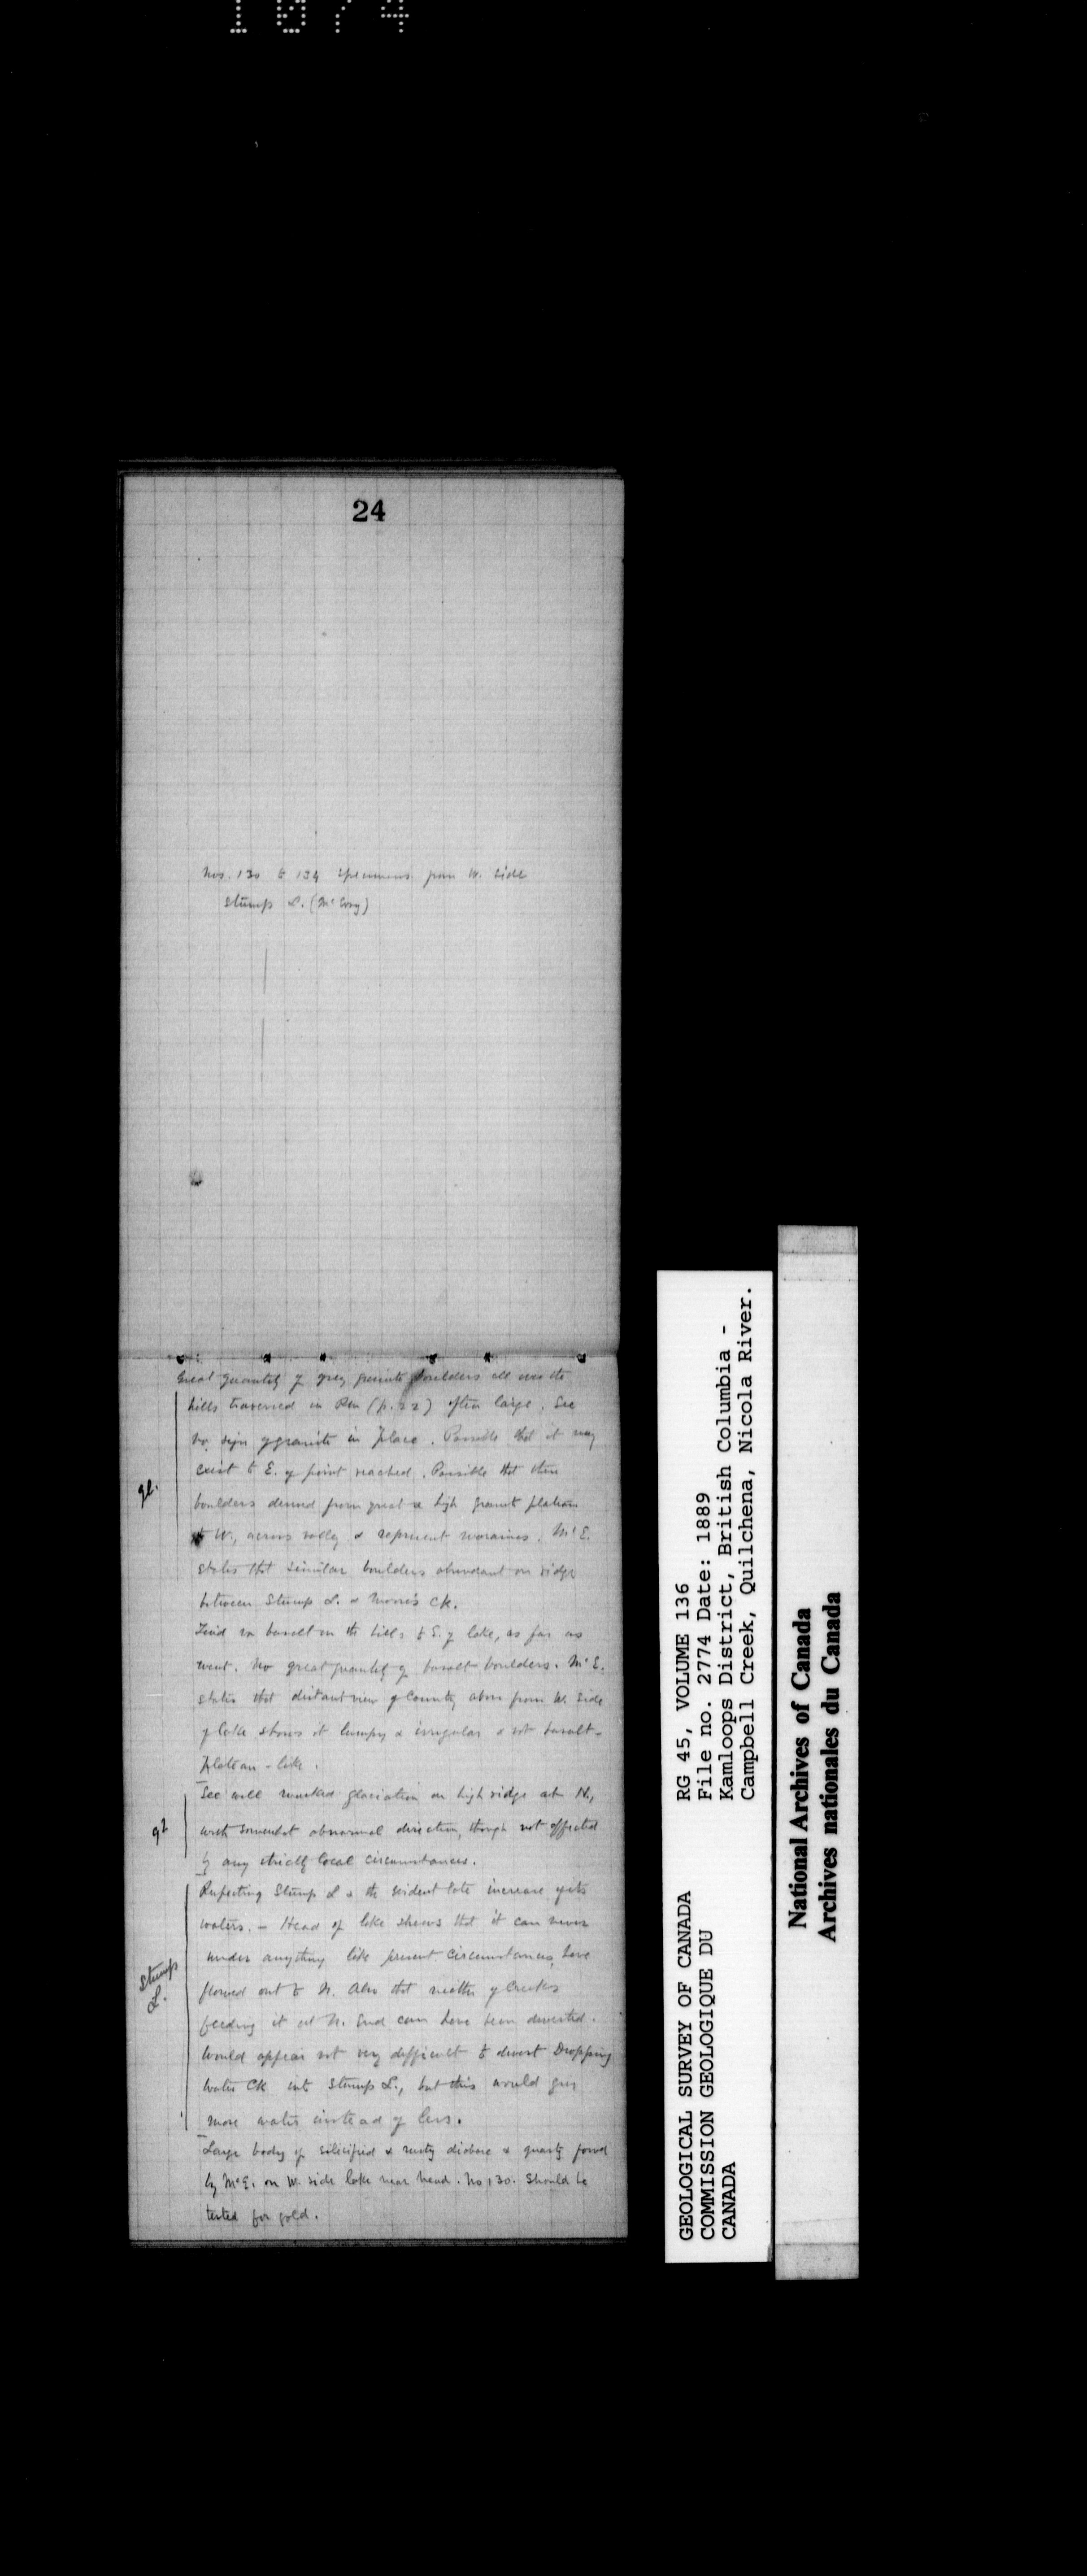 1074
24
Nos. 130 to 134 specimens from W. side
Stump L. (McEvoy)
Great quantity of grey granite boulders all over the
hills traversed in Rm (p. 22) often large. See
no sign of granite in place. Possible that it may
exist to E. of point reached. Possible that these
boulders derived from great & high granite plateau
to W., across valley & represent moraines. McE.
states that similar boulders abundant on ridge
between Stump L. & Moore's Ck.
gl.
Find no basalt on the hills to E. of lake, as far as
went. No great quantity of basalt boulders. McE.
states that distant view of country above from W. side
of lake shows it lumpy & irregular & not basalt-
plateau-like.
See well marked glaciation on high ridge at N.,
with somewhat abnormal direction, though not affected
by any strictly local circumstances.
gl
Respecting Stump L & the evident late increase of its
waters. – Head of lake shows that it can never
under anything like present circumstances, have
flowed out to N. Also that neither of creeks
feeding it at N. End can have been diverted.
Would appear not very difficult to divert Dropping
Water Ck into Stump L., but this would give
more water instead of less.
Stump
L.
Large body of silicified & rusty diabase & quartz found
by McE. on W. side lake near head. No 130. Should be
tested for gold.
GEOLOGICAL SURVEY OF CANADA
COMMISSION GEOLOGIQUE DU
CANADA
RG 45, VOLUME 136
File no. 2774 Date: 1889
Kamloops District, British Columbia -
Campbell Creek, Quilchena, Nicola River.
National Archives of Canada
Archives nationales du Canada